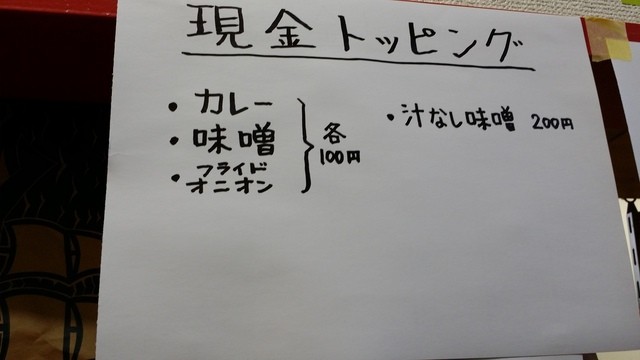 現金トッピング
・カレー
・味噌
・フライド
オニオン
各
100円
・汁なし味噌 200円